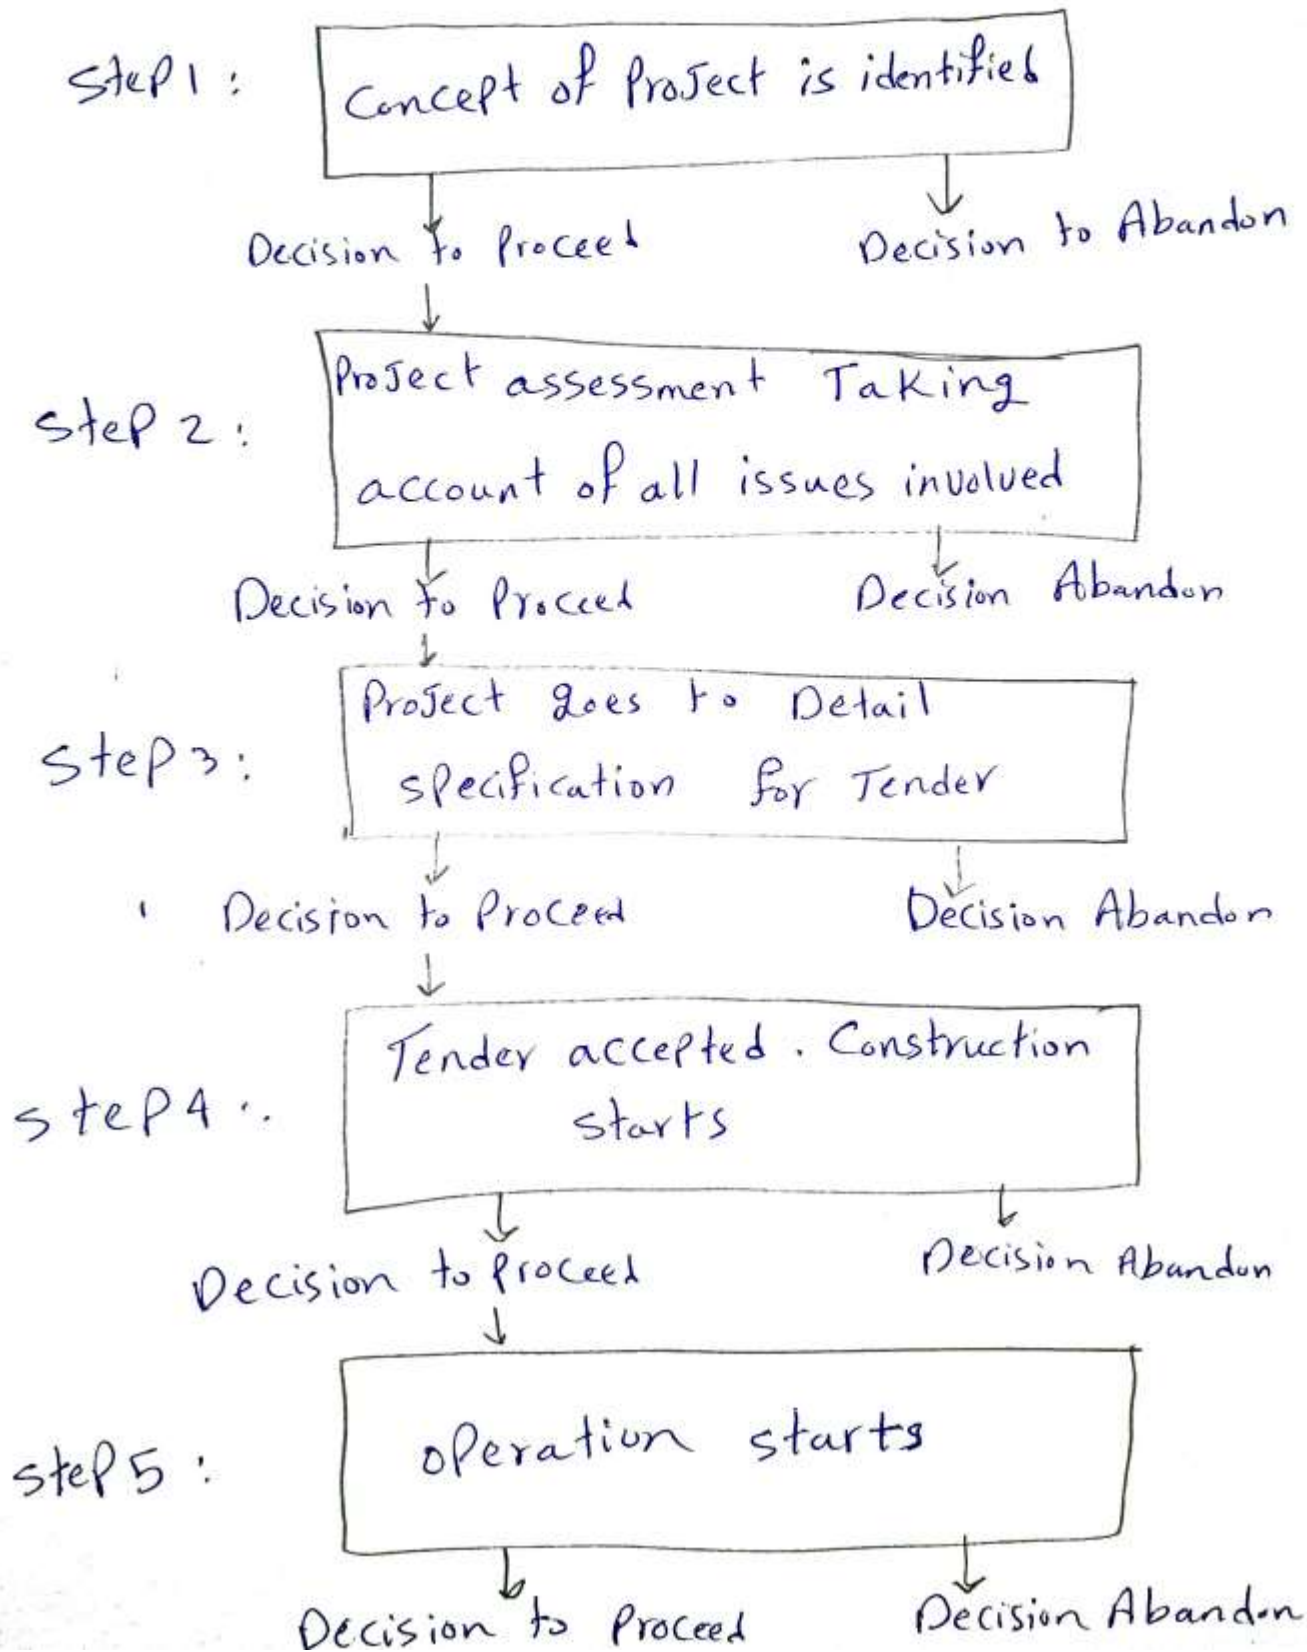 Step 1 :
Concept of Project is identified
Decision to Proceed
Decision to Abandon
Step 2 :
Project assessment Taking
account of all issues involved
Decision to Proceed
Decision Abandon
Step 3 :
Project goes to Detail
specification for Tender
Decision to Proceed
Decision Abandon
step 4 :
Tender accepted . Construction
starts
Decision to Proceed
Decision Abandon
step 5 :
operation starts
Decision to Proceed
Decision Abandon